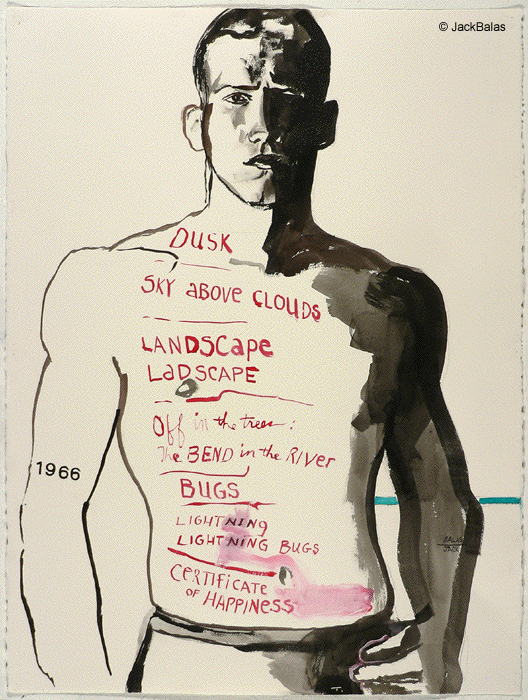 © JackBalas
DUSK
SKY aBOVE CLOUDS
LANDSCape
LaDSCAPE
Off in the trees:
The BEND in the RIVER
BUGS
LIGHTNINg
LIGHTNING BUGS
CERTiFiCATE
OF HAPPINESS
1966
BALAS